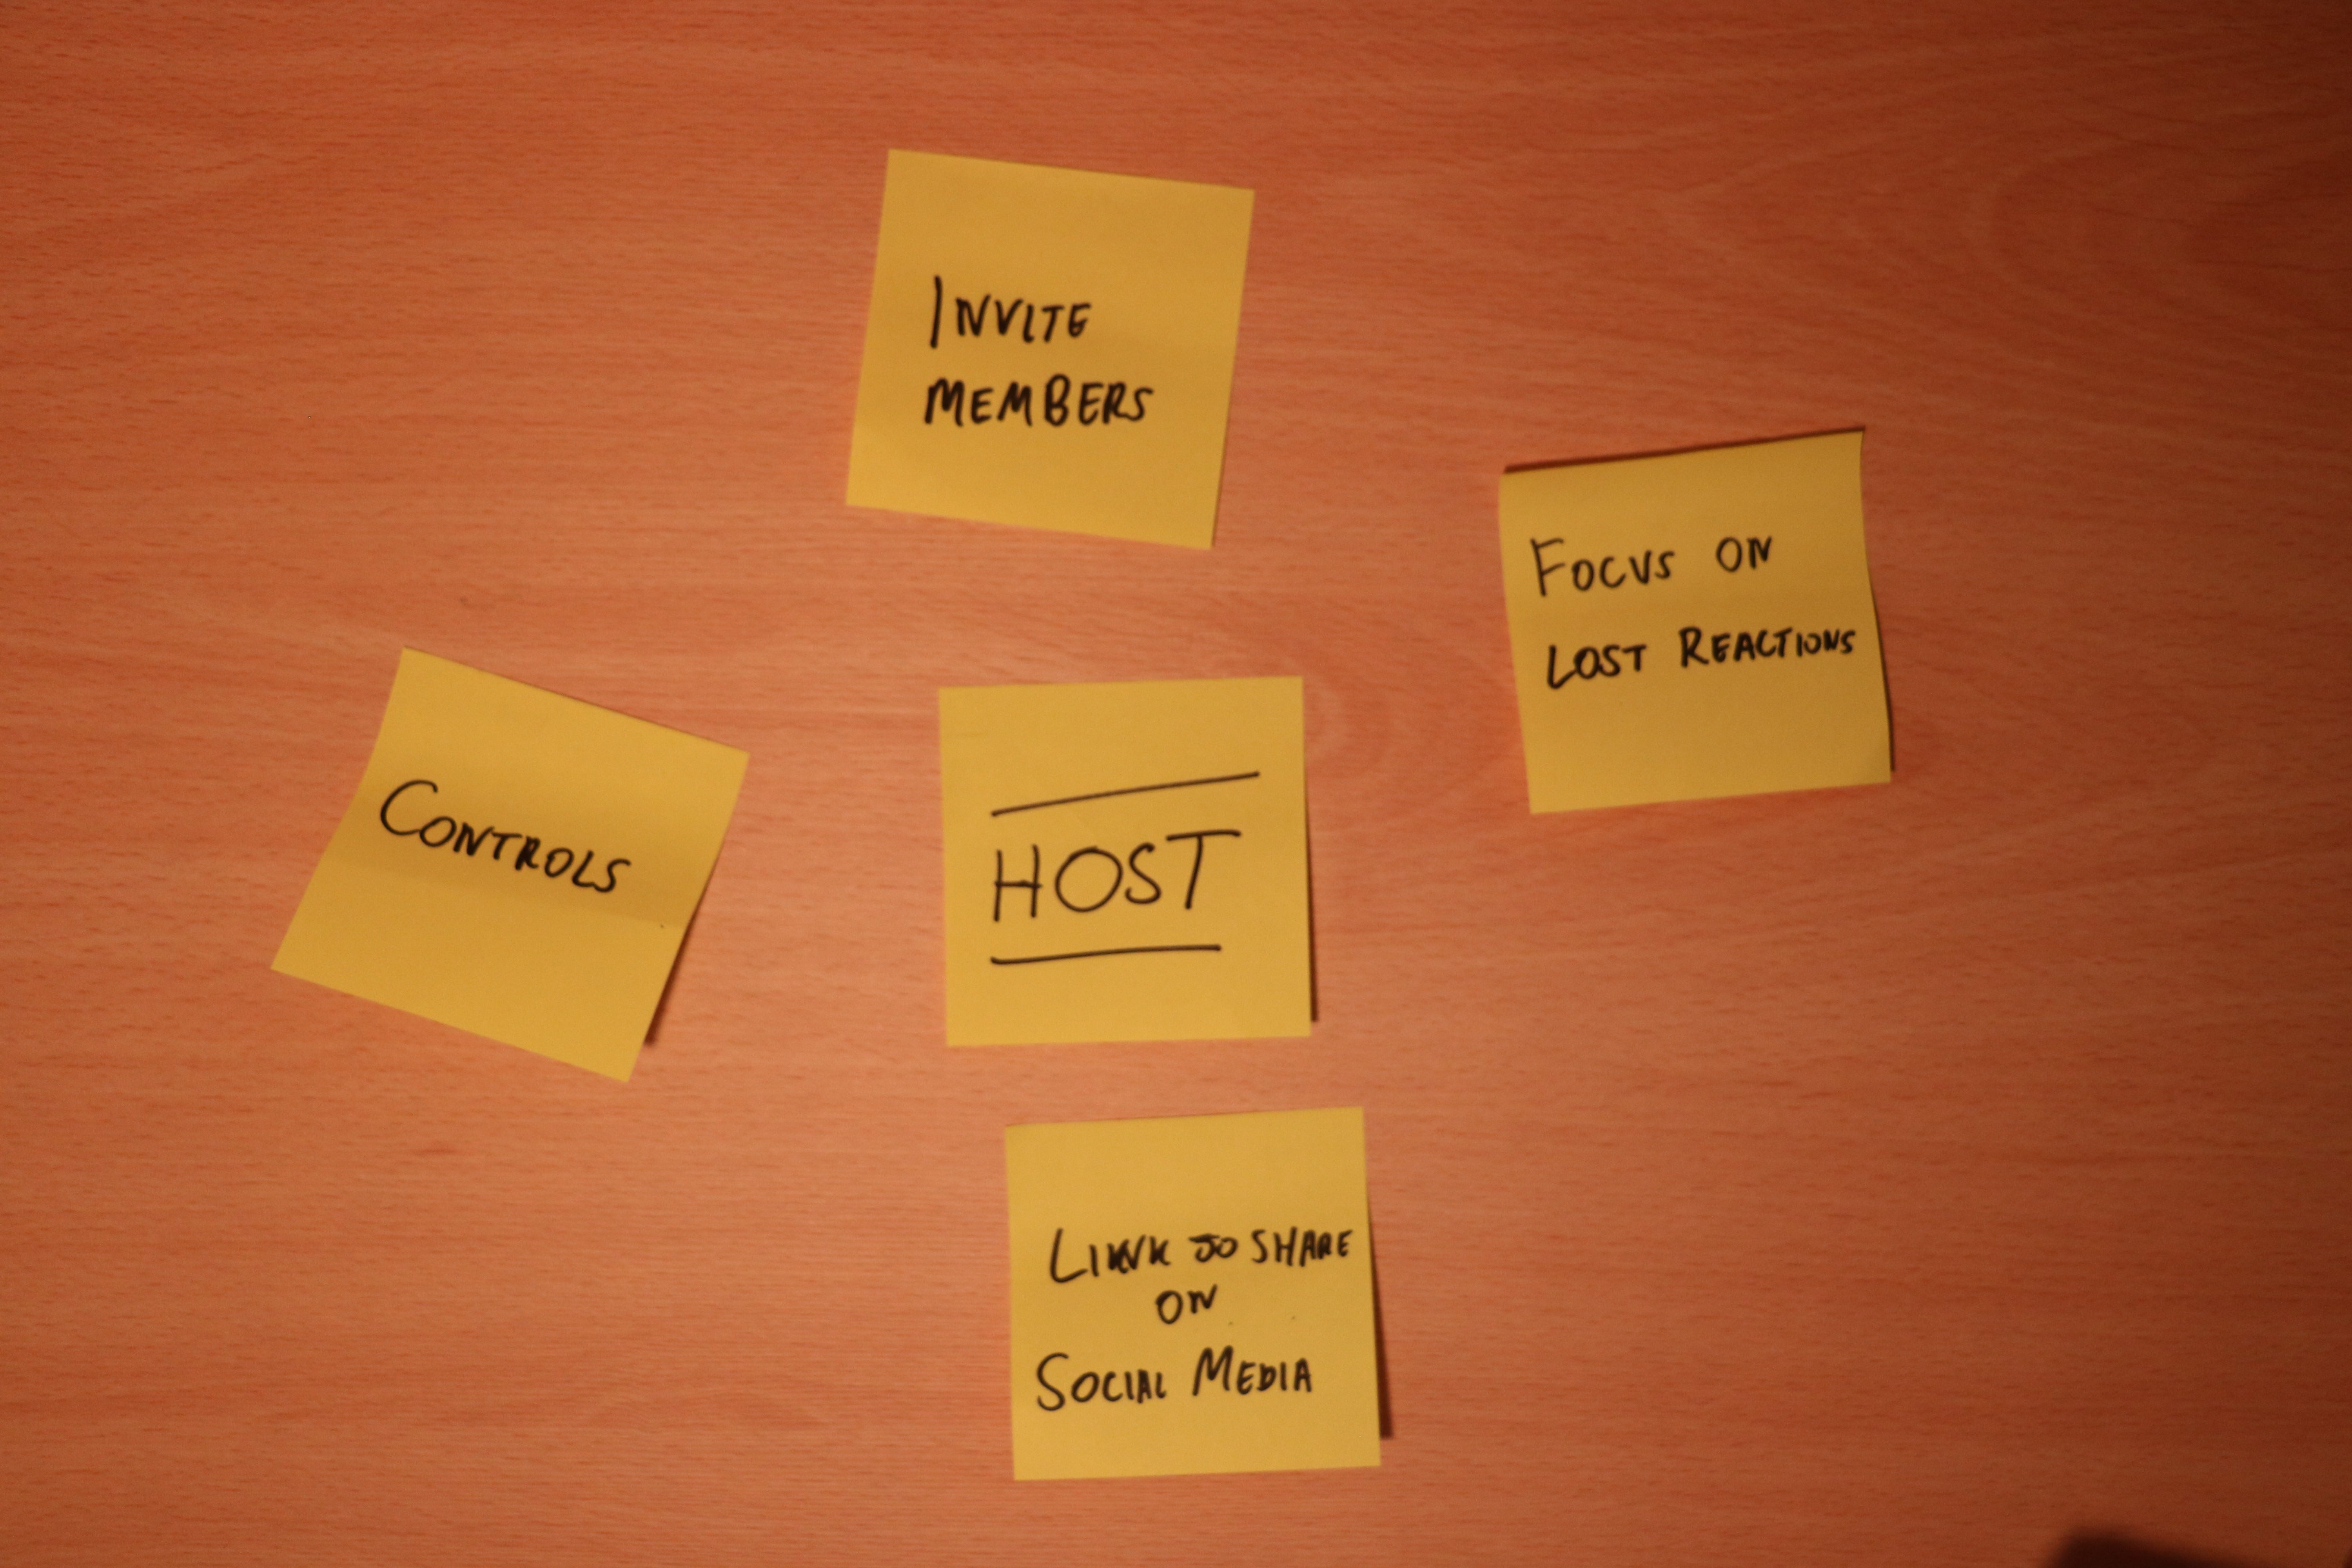 INVITE
MEMBERS
FOCUS ON
LOST REACTIONS
CONTROLS
HOST
LINK TO SHARE
ON
SOCIAL MEDIA